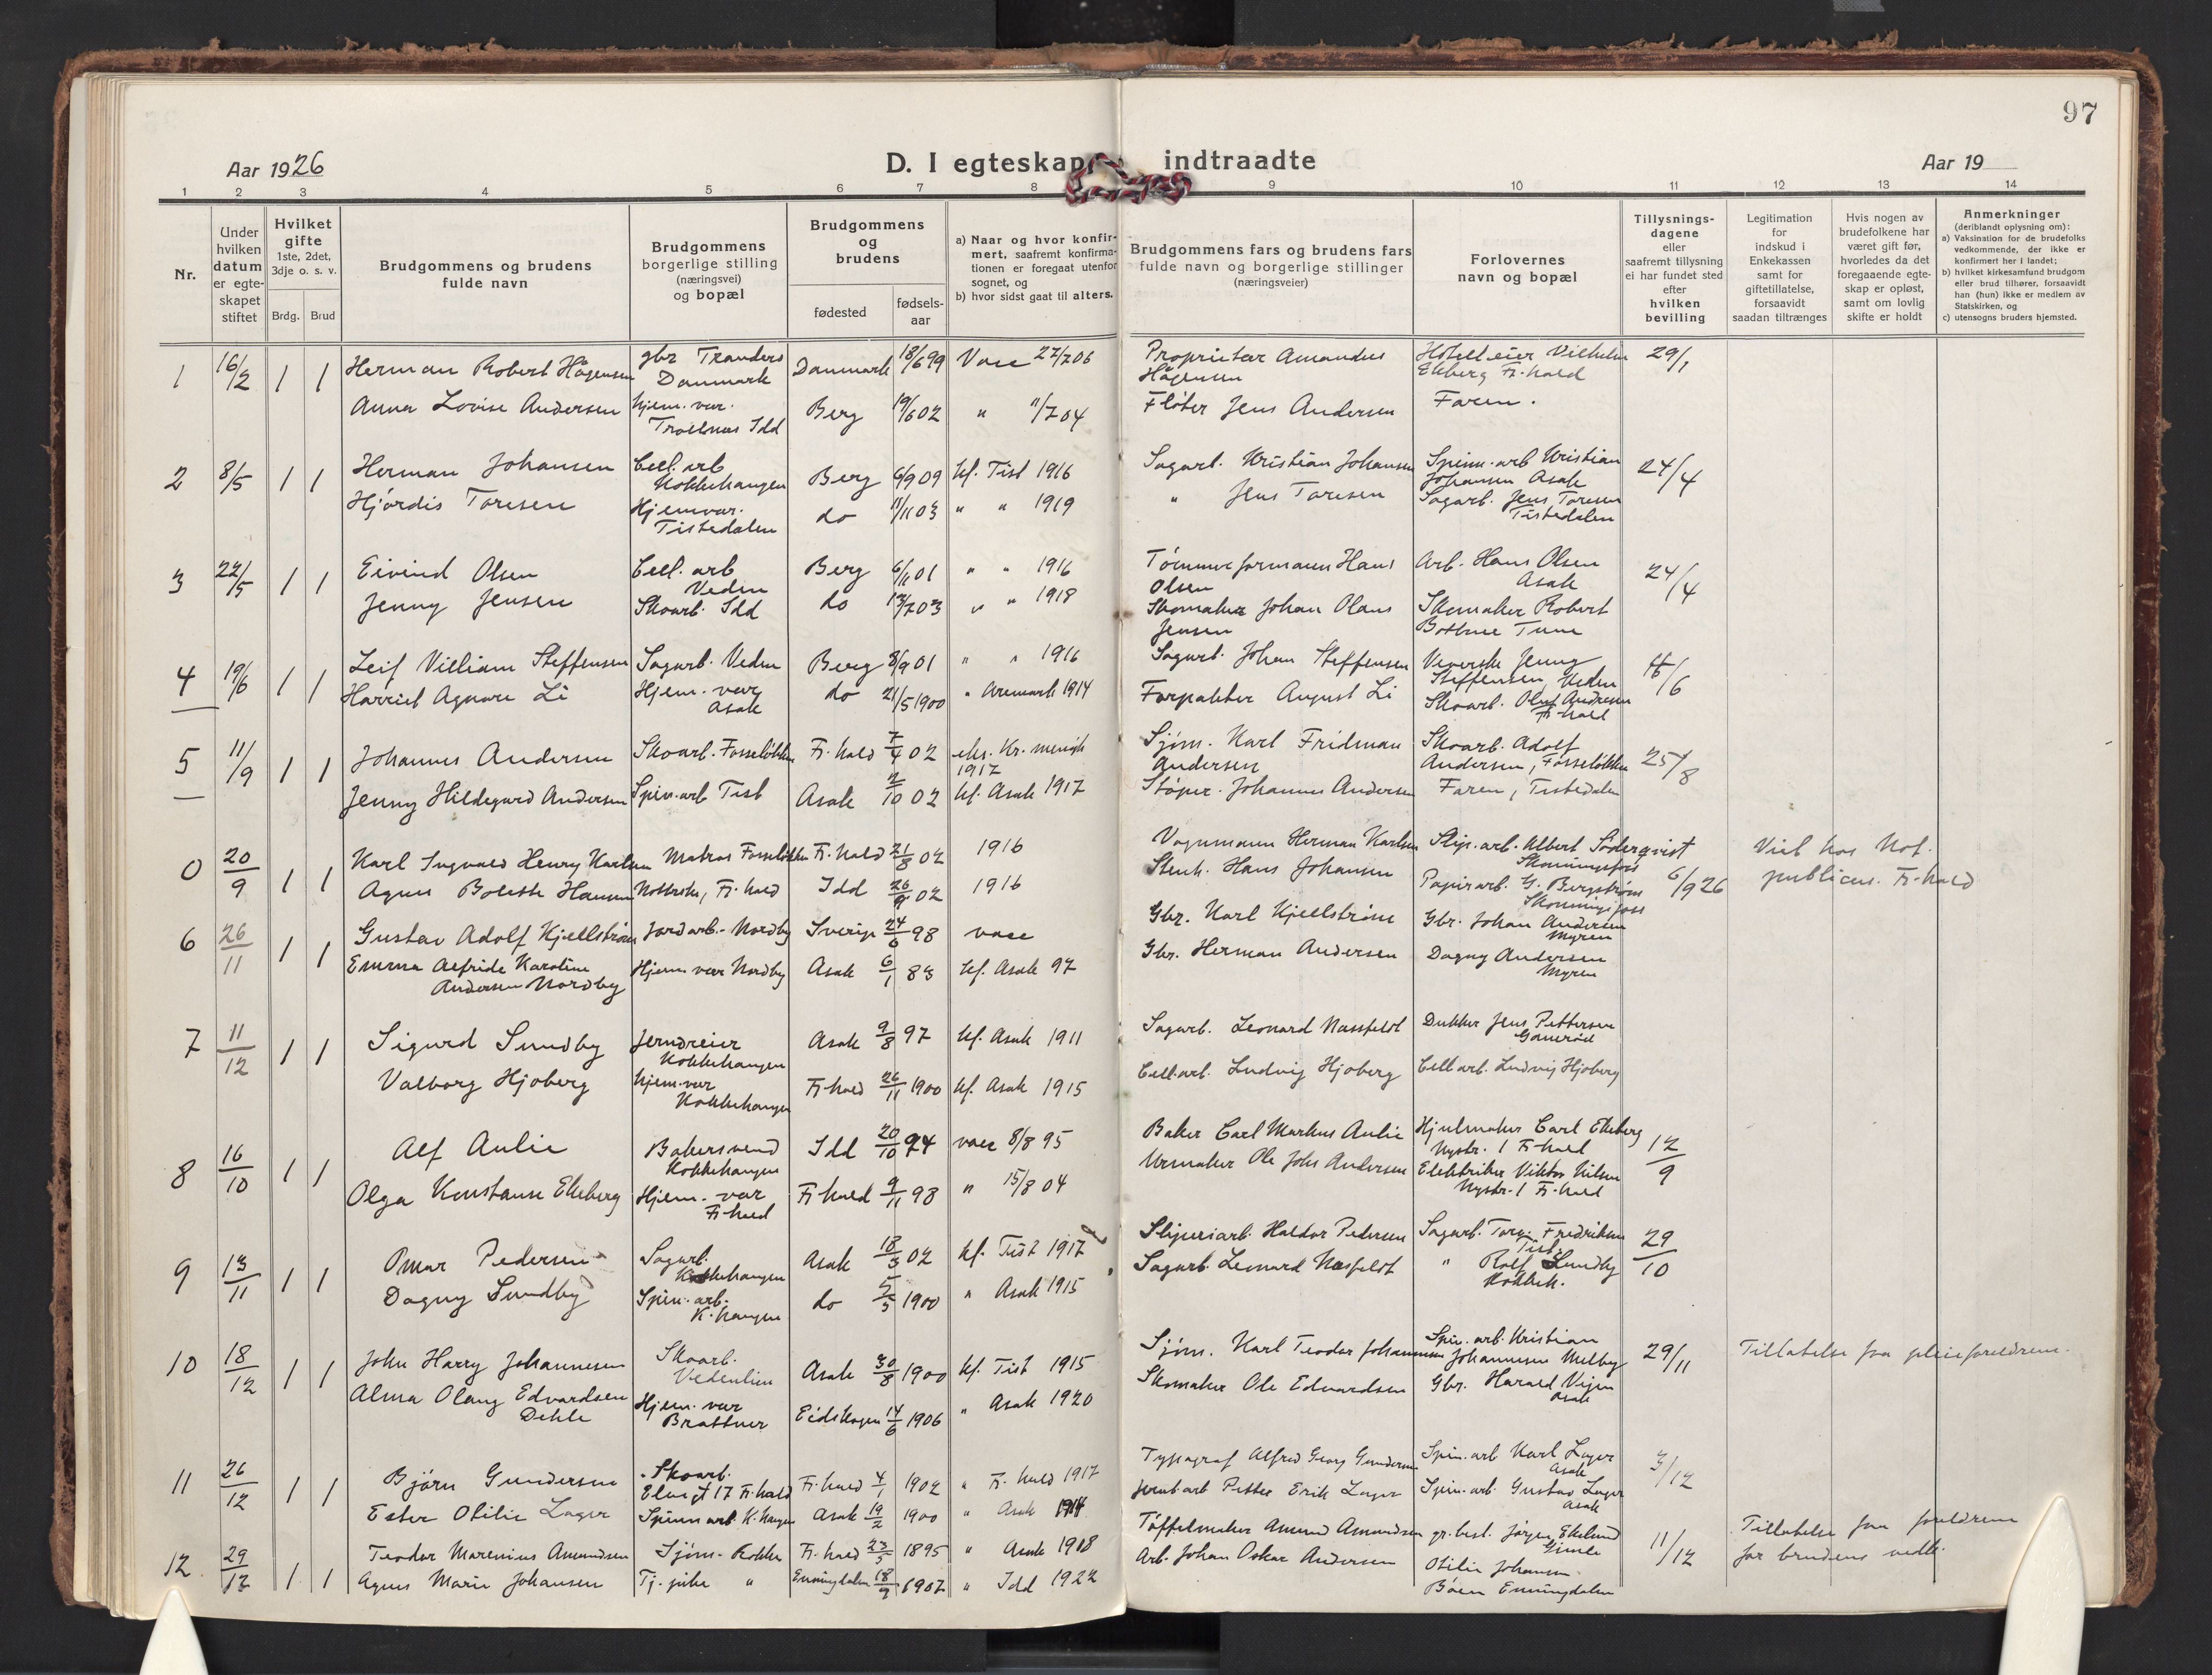 97
Aar 1926
D. I egteskap indtraadte
Aar 19
1 2 3 4 5 6 7 8 9 10 11 12 13 14
Nr.
Under hvilken datum er egte-skapet stiftet
Hvilket gifte 1ste, 2det, 3dje o. s. v.
Brdg. Brud
Brudgommens og brudens fulde navn
Brudgommens borgerlige stilling (næringsvei) og bopæl
Brudgommens og brudens
fødested
fødsels-aar
a) Naar og hvor konfir-mert, saafremt konfirma-tionen er foregaat utenfor sognet, og
b) hvor sidst gaat til alters.
Brudgommens fars og brudens fars fulde navn og borgerlige stillinger (næringsveier)
Forlovernes navn og bopæl
Tillysnings-dagene eller saafremt tillysning ei har fundet sted efter hvilken bevilling
Legitimation for indskud i Enkekassen samt for giftetillatelse, forsaavidt saadan tiltrænges
Hvis nogen av brudefolkene har været gift før, hvorledes da det foregaaende egte-skap er opløst, samt om lovlig skifte er holdt
Anmerkninger (deriblandt oplysning om):
a) Vaksination for de brudefolks vedkommende, der ikke er konfirmert her i landet;
b) hvilket kirkesamfund brudgom eller brud tilhører, forsaavidt han (hun) ikke er medlem av Statskirken, og
c) utensogns bruders hjemsted.
1 16/2 1 1 Herman Robert Hågensen gbr Tranders Danmark Danmark 18/6 99 Vacc 27/7 06 Proprietær Amandus Hågensen Hotelleier Vilhelm Ekeberg Fr.hald 29/1
Anna Lovise Andersen hjem. vær. Idd Berg 19/6 02 " 11/7 04 Fløter Jens Andersen Faren.
2 8/5 1 1 Herman Johansen Cell. arb Kokkehaugen Berg 6/9 09 kf. Tist 1916 Sagarb. Kristian Johansen Spinn. arb Kristian Johansen Asak 24/4
Hjördis Toresen Hjemvær. Tistedalen do 11/11 03 " " 1919 " Jens Toresen Sagarb. Jens Toresen Tistedalen
3 22/5 1 1 Eivind Olsen Cell. arb Veden Berg 6/11 01 " " 1916 Tømmerformann Hans Olsen Arb. Hans Olsen Asak 24/4
Jenny Jensen Skoarb. Idd do 03 " " 1918 Skomaker Johan Olaus Jensen Skomaker Robert Tune
4 19/6 1 1 Leif Villiam Steffensen Sagarb. Veden Berg 8/9 01 " " 1916 Sagarb. Johan Steffensen Veverske Jenny Steffensen, Veden /6
Harriet Agnare Li Hjem. vær Asak do 21/5 1900 " Aremark 1914 Forpakter August Li Skoarb. Oluf Andresen Fr.hald
5 11/9 1 1 Johannes Andersen Skoarb. Fosseløkken Fr.hald 7/4 02 Kr. menigh 1917 Sjøm. Karl Fridman Andersen Skoarb. Adolf Andersen, Fosseløkken 25/8
Jenny Hildegard Andersen Spin. arb Tist Asak 2/10 02 kf. Asak 1917 Støper. Johannes Andersen Faren, Tistedalen
0 20/9 1 1 Karl Ingvald Henry Karlsen Matros Fosseløkken Fr.hald 21/8 02 1916 Vognmann Herman Karlsen Slip. arb. Albert Söderqvist Skonningsfoss
Agnes Bolette Hansen , Fr.hald Idd 26/9 02 1916 Stenh. Hans Johansen Papirarb. G. Bergström Skonningsfoss 6/9 26 Viet hos Not. publicus. Fr.hald
6 26/11 1 1 Gustav Adolf Kjellström Jordarb. Nordby Sverige 24/6 98 vacc Gbr. Karl Kjellström Gbr. Johan Andersen Myren
Emma Alfride Karoline Andersen Nordby Hjem. vær Nordby Asak 6/1 83 kf. Asak 97 Gbr. Herman Andersen Dagny Andersen Myren
7 11/12 1 1 Sigurd Sundby Jerndreier Kokkehaugen Asak 9/8 97 kf. Asak 1911 Sagarb. Leonard Nassfeldt Dukker Jens Pettersen
Valborg Hjoberg hjem. vær Kokkehaugen Fr.hald 26/11 1900 kf. Asak 1915 Cell. arb. Ludvig Hjoberg Cell arb. Ludvig Hjoberg
8 16/10 1 1 Alf Aulie Bakersvend Kokkehaugen Idd 20/10 94 vacc 8/8 95 Baker Carl Markus Aulie Hjulmaker Carl Ekeberg Nystr. 1 Fr.hald 12/9
Olga Konstanse Ekeberg Hjem. vær Fr.hald Fr.hald 9/11 98 " 15/8 04 Urmaker Ole Johs Andersen Elektriker Viktor Nilsen Nystr. 1 Fr.hald
9 13/11 1 1 Omar Pedersen Sagarb. Kokkehaugen Asak 18/3 02 kf. Tist 1917 Sliperiarb. Haldor Pedersen Sagarb. Fredriksen Tist. 29/10
Dagny Sundby Spin. arb. K.haugen do 5/5 1900 " Asak 1915 Sagarb. Leonard Nasfeldt " Rolf Sundby Kokkeh.
10 18/12 1 1 John Harry Johannesen Skoarb. Vedenlien Asak 30/8 1900 kf. Tist 1915 Sjøm. Karl Teodor Johannesen Spin. arb. Kristian Johannesen Melby 29/11 Tillatelse fra pleieforeldrene.
Alma Olaug Edvardsen Dehle Hjem. vær Brattner Eidskogen 14/6 1906 " Asak 1920 Skomaker Ole Edvardsen Gbr. Harald Asak
11 26/12 1 1 Björn Gundersen Skoarb. 17 Fr.hald Fr.hald 4/1 1902 " Fr.hald 1917 Typograf Alfred Georg Gundersen Spin. arb Karl Lager Asak 3/12
Ester Otilie Lager Spinn arb. K.haugen Asak 19/2 1900 " Asak 1914 Jernb arb Petter Erik Lager Spin. arb. Gustav Lager Asak
12 29/12 1 1 Teodor Marenius Amundsen Sjøm. Rokke Fr.hald 23/5 1895 " Asak 1918 Tøffelmaker Amund Amundsen gr. best. Jørgen Ekelund 11/12 Tillatelse fra foreldrene for brudens vedk.
Agnes Marie Johansen Tj. pike " Enningdalen 18/9 1907 " Idd 1922 Arb. Johan Oskar Andersen Otilie Johansen Båen Enningdalen